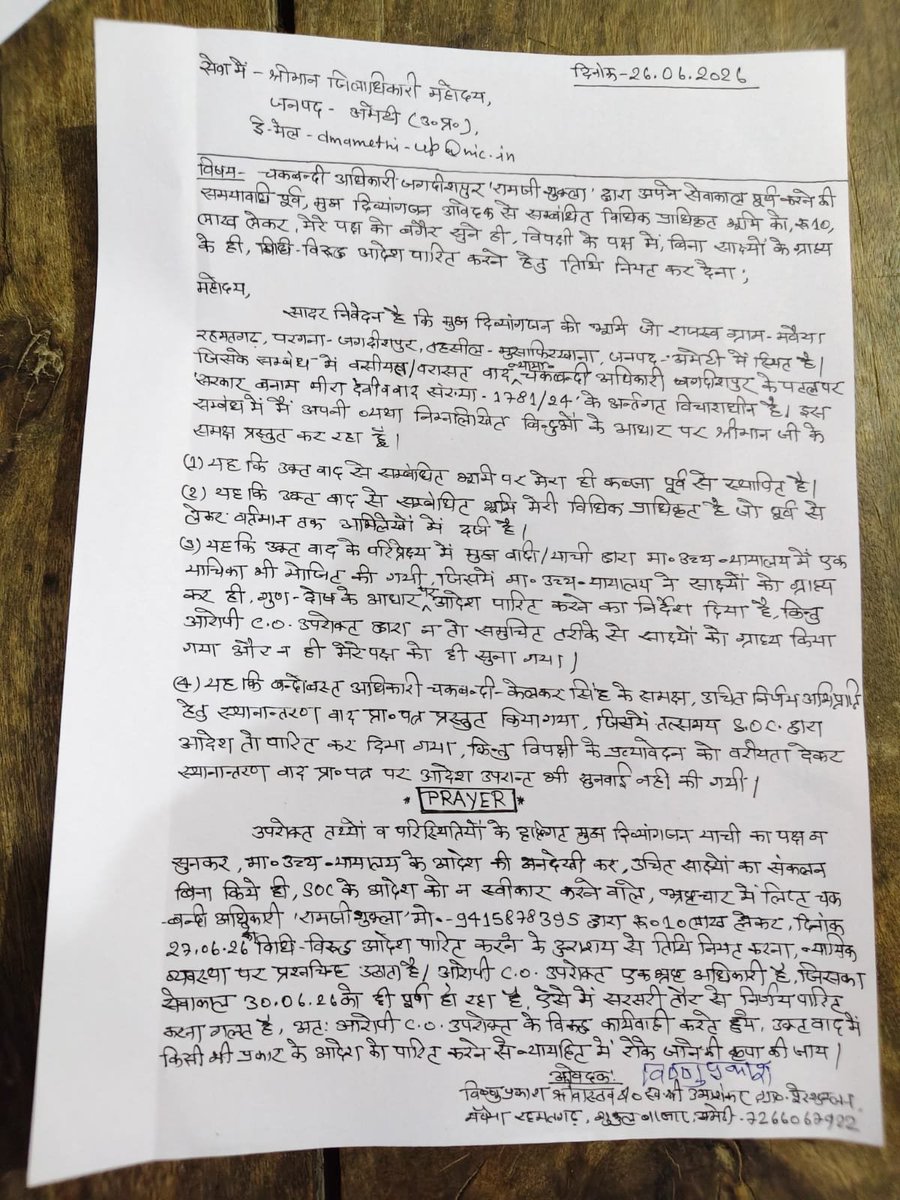 सेवा में - श्रीमान जिलाधिकारी महोदय,
दिनांक-26.06.2026
जनपद - अमेठी (उ०प्र०),
ई-मेल - dmamethi-up@nic.in
विषय- चकबन्दी अधिकारी जगदीशपुर 'रामजी शुक्ला' द्वारा अपने सेवाकाल पूर्ण करने की
समयावधि पूर्व, मुझ दिव्यांगजन आवेदक से सम्बंधित विधिक प्राधिकृत भूमि का, रू10,
लाख लेकर, मेरे पक्ष को बगैर सुने ही, विपक्षी के पक्ष में, बिना साक्ष्यों के ग्राह्य
के ही, विधि-विरूद्ध आदेश पारित करने हेतु तिथि नियत कर देना;
महोदय,
सादर निवेदन है कि मुझ दिव्यांगजन की भूमि जो राजस्व ग्राम- मवैया
रहमतगढ़, परगना- जगदीशपुर, तहसील- मुसाफिरखाना, जनपद- अमेठी में स्थित है।
जिसके सम्बंध में वसीयत/वरासत वाद न्याया० चकबन्दी अधिकारी जगदीशपुर के पटल पर
'सरकार बनाम मीरा देवी व वाद संख्या - 1781/24' के अर्न्तगत विचाराधीन है। इस
सम्बंध में मैं अपनी व्यथा निम्नलिखित बिन्दुओं के आधार पर श्रीमान जी के
समक्ष प्रस्तुत कर रहा हूँ।
(1) यह कि उक्त वाद से सम्बंधित भूमि पर मेरा ही कब्जा पूर्व से स्थापित है।
(2) यह कि उक्त वाद से सम्बंधित भूमि मेरी विधिक प्राधिकृत है जो पूर्व से
लेकर वर्तमान तक अभिलेखों में दर्ज है।
(3) यह कि उक्त वाद के परिप्रेक्ष्य में मुझ वादी/याची द्वारा मा० उच्च न्यायालय में एक
याचिका भी योजित की गयी, जिसमें मा० उच्च-न्यायालय ने साक्ष्यों को ग्राह्य
कर ही, गुण-दोष के आधार पर आदेश पारित करने का निर्देश दिया है, किन्तु
आरोपी C.O. उपरोक्त द्वारा न तो समुचित तरीके से साक्ष्यों को ग्राह्य किया
गया और न ही मेरे पक्ष को ही सुना गया।
(4) यह कि बन्दोबस्त अधिकारी चकबन्दी- केलकर सिंह के समक्ष, उचित निर्णय अभिप्राप्ति
हेतु स्थानान्तरण वाद प्रा० पत्र प्रस्तुत किया गया, जिसमें तत्समय S.O.C. द्वारा
आदेश तो पारित कर दिया गया, किन्तु विपक्षी के प्रत्यावेदन को वरीयता देकर
स्थानान्तरण वाद प्रा० पत्र पर आदेश उपरान्त भी सुनवाई नही की गयी।
* PRAYER *
उपरोक्त तथ्यों व परिस्थितियों के दृष्टिगत मुझ दिव्यांगजन याची का पक्ष न
सुनकर, मा० उच्च न्यायालय के आदेश की अनदेखी कर, उचित साक्ष्यों का संकलन
बिना किये ही, SOC के आदेश को न स्वीकार करने वाले, भ्रष्टाचार में लिप्त चक
-बन्दी अधिकारी 'रामजी शुक्ला' मो.- 9415878395 द्वारा रू०10 लाख लेकर, दिनांक
27.06.26 को विधि-विरूद्ध आदेश पारित करने के दुराशय से तिथि नियत करना, न्यायिक
व्यवस्था पर प्रश्नचिन्ह उठाता है। आरोपी C.O. उपरोक्त एक भ्रष्ट अधिकारी है, जिसका
सेवाकाल 30.06.26 को ही पूर्ण हो रहा है, ऐसे में सरसरी तौर से निर्णय पारित
करना गलत है, अतः आरोपी C.O. उपरोक्त के विरूद्ध कार्यवाही करते हुये, उक्त वाद में
किसी भी प्रकार के आदेश को पारित करने से न्यायहित में रोके जाने की कृपा की जाय।
आवेदक: विष्णु प्रकाश
विष्णु प्रकाश श्रीवास्तव S/o स्व० श्री उमाशंकर
मवैया रहमतगढ़, शुकुल बाजार, अमेठी- 7266067922